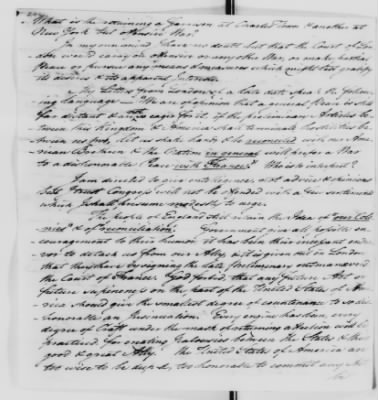 What is the retaining a Garrison at Charles Town & another at
New York but Offensive War?
In my own mind I have no doubt but that the Court of Lon-
don would carry on offensive or any other War, or make
Peace or pursue any means & measures which might best gratify
its desires & its apparent Interests.
My Letters from London of a late date speak the follow-
ing Language — "We are of opinion that a general Peace is still
far distant & are eager for it, if the preliminary Articles be-
tween this Kingdom & America shall terminate hostilities be-
tween us, but let us shake hands & be reconciled with our Ame-
rican Brethren & the Nation in general will prefer a War
to a dishonorable Peace with France." Who is to interpret?
I am directed to give
but I trust Congress will not be offended with a few sentiments
which I shall presume modestly to urge.
The people of England still retain the Idea of "our Colo-
nies" & of "reconciliation." Government give all possible en-
couragement to their humor it has been their incessant endea-
vor to detach us from our Ally, & it is given out in London
that they have by signing the late preliminaries outmaneuvered
the Court of France. God forbid, that any future Act or
future suspicions on the part of the United States of Ame-
rica should give the smallest degree of countenance to so dis-
honorable an Insinuation. Every engine has been, every
degree of Craft under the mask of returning affection will be
practised for creating Jealousies between the States & their
good & great Ally. The United States of America are
too wise to be duped, too honorable to commit any Act